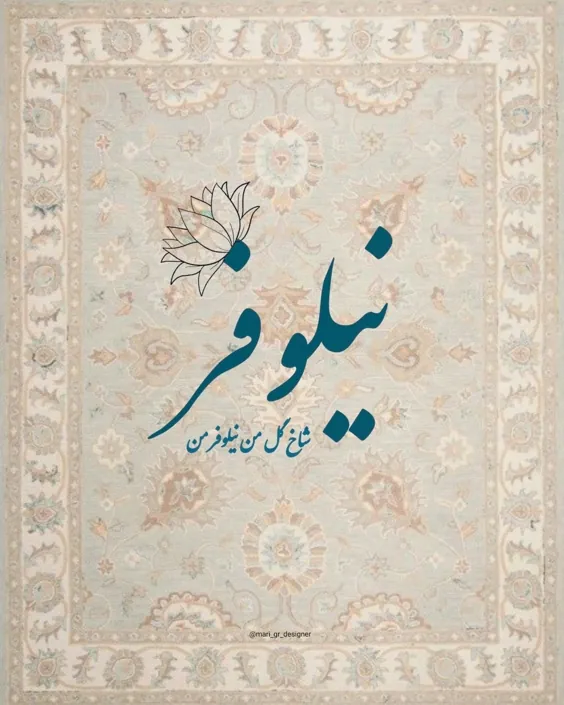 نیلوفر
شاخ گل من نیلوفر من
@mari_gr_designer